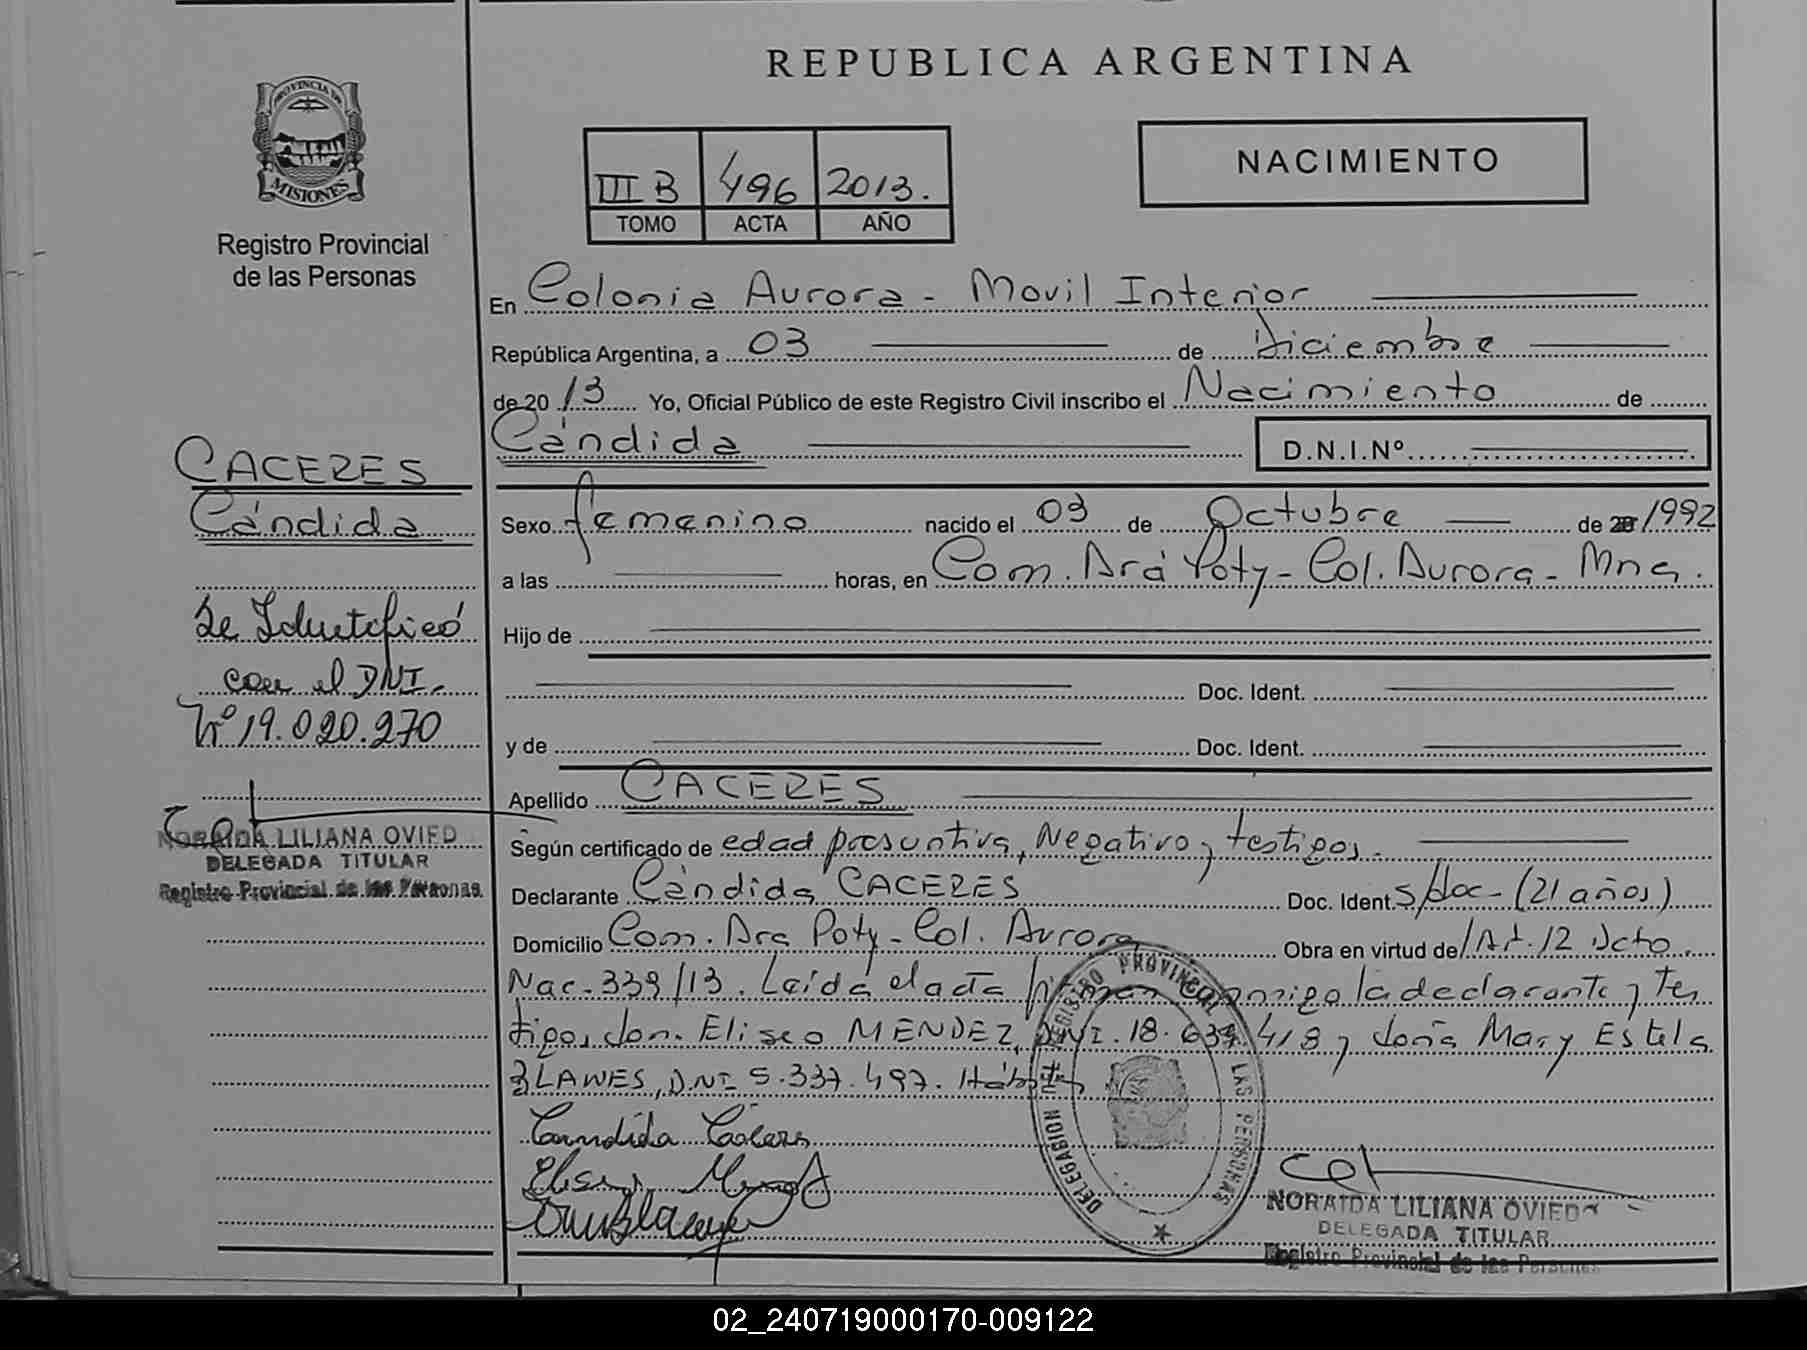 REPUBLICA ARGENTINA
PROVINCIA DE
MISIONES
Registro Provincial
de las Personas
NACIMIENTO
III B 496 2013.
TOMO ACTA AÑO
En Colonia Aurora - Movil Interior
República Argentina, a 03 de Diciembre
de 20 13 Yo, Oficial Público de este Registro Civil inscribo el Nacimiento de
Cándida D.N.I.Nº
CACERES
Cándida
Sexo femenino nacido el 03 de Octubre de 1992
a las horas, en Com. Ará Poty - Col. Aurora - Mnes.
Hijo de
Doc. Ident.
y de Doc. Ident.
Se Identificó
con el DNI.
Nº 19.020.270
Apellido CACERES
NORAIDA LILIANA OVIEDO
DELEGADA TITULAR
Registro Provincial de las Personas
Según certificado de edad presuntiva, Negativo y testigos.
Declarante Cándida CACERES Doc. Ident. s/doc - (21 años)
Domicilio Com. Ara Poty - Col. Aurora Obra en virtud de/Art. 12 Dcto.
Nac. 339/13. Leída el acta firman conmigo la declarante y tes
tigos, don. Eliseo MENDEZ, DNI. 18.639.418 y doña Mary Estela
BLAWES, D.NI 5.337.497. Hábiles
Candida Cáceres
DELEGACION REGISTRO PROVINCIAL DE LAS PERSONAS
NORAIDA LILIANA OVIEDO
DELEGADA TITULAR
Registro Provincial de las Personas
02_240719000170-009122